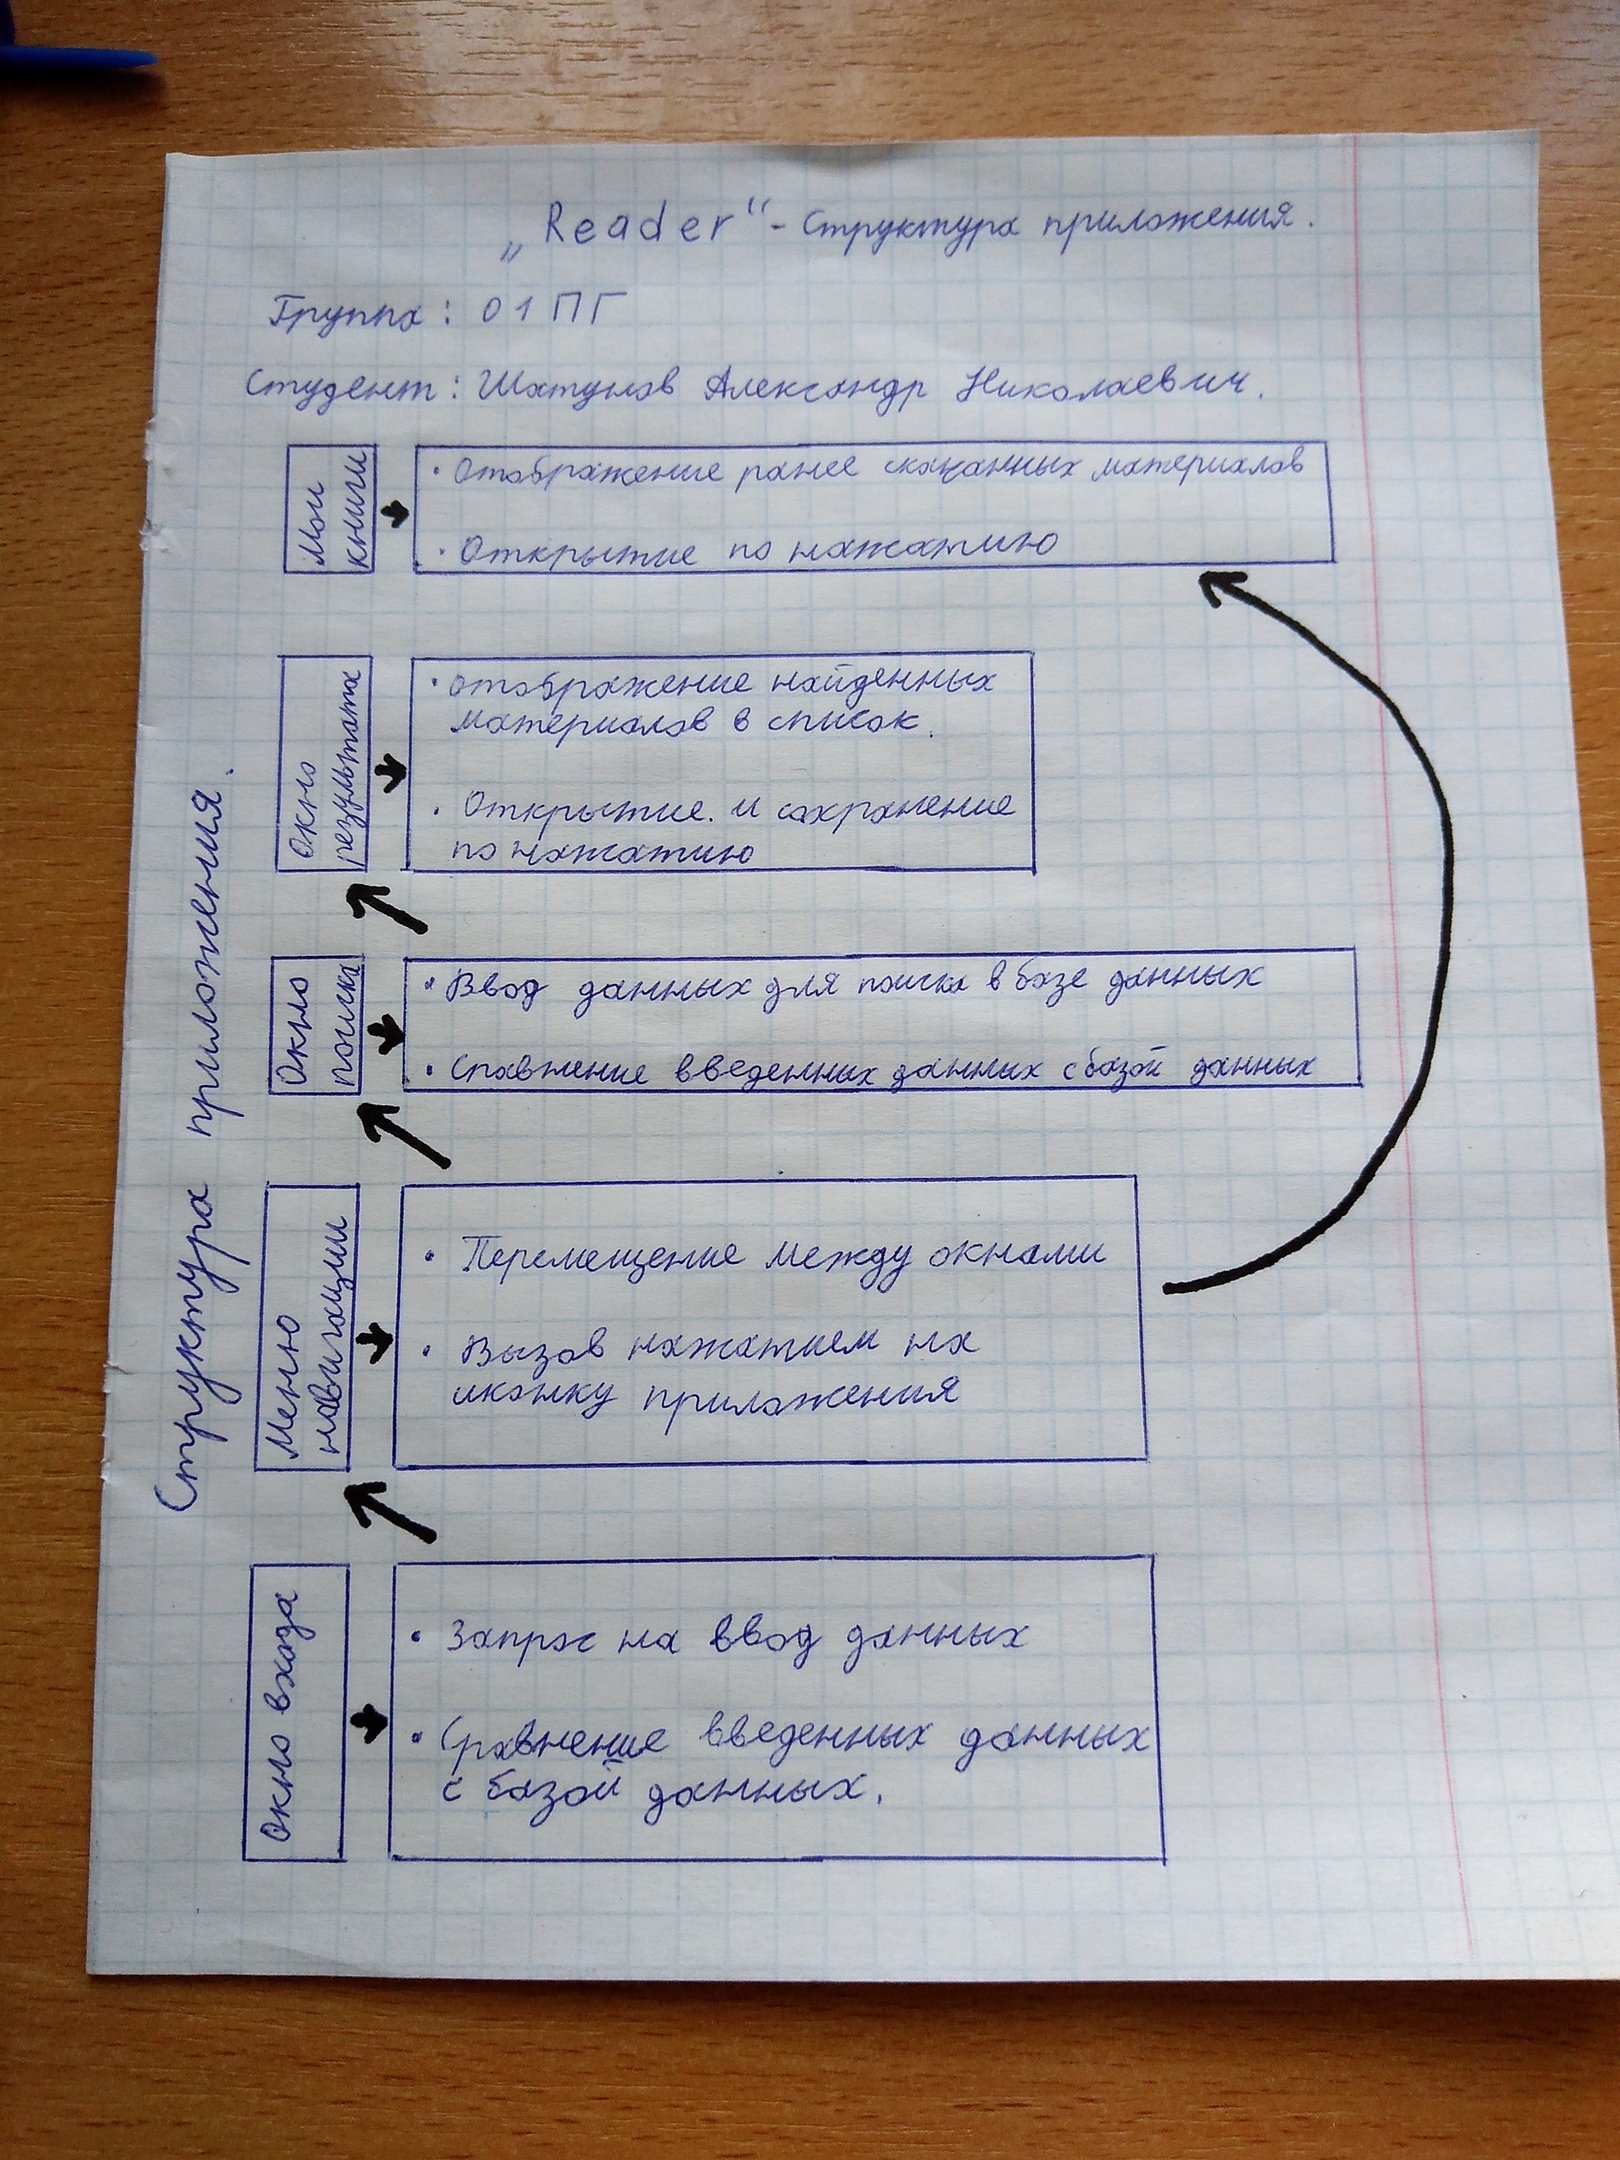 „Reader“ - Структура приложения.
Группа: 01ПГ
Студент: Шатунов Александр Николаевич.
Структура приложения.
Мои
книги
• Отображение ранее скачанных материалов
• Открытие по нажатию
Окно
результата
• Отображение найденных
материалов в список.
• Открытие. и сохранение
по нажатию
Окно
поиска
• Ввод данных для поиска в базе данных
• Сравнение введенных данных с базой данных
Меню
навигации
• Перемещение между окнами
• Вызов нажатием на
иконку приложения
Окно входа
• Запрос на ввод данных
• Сравнение введенных данных
с базой данных.